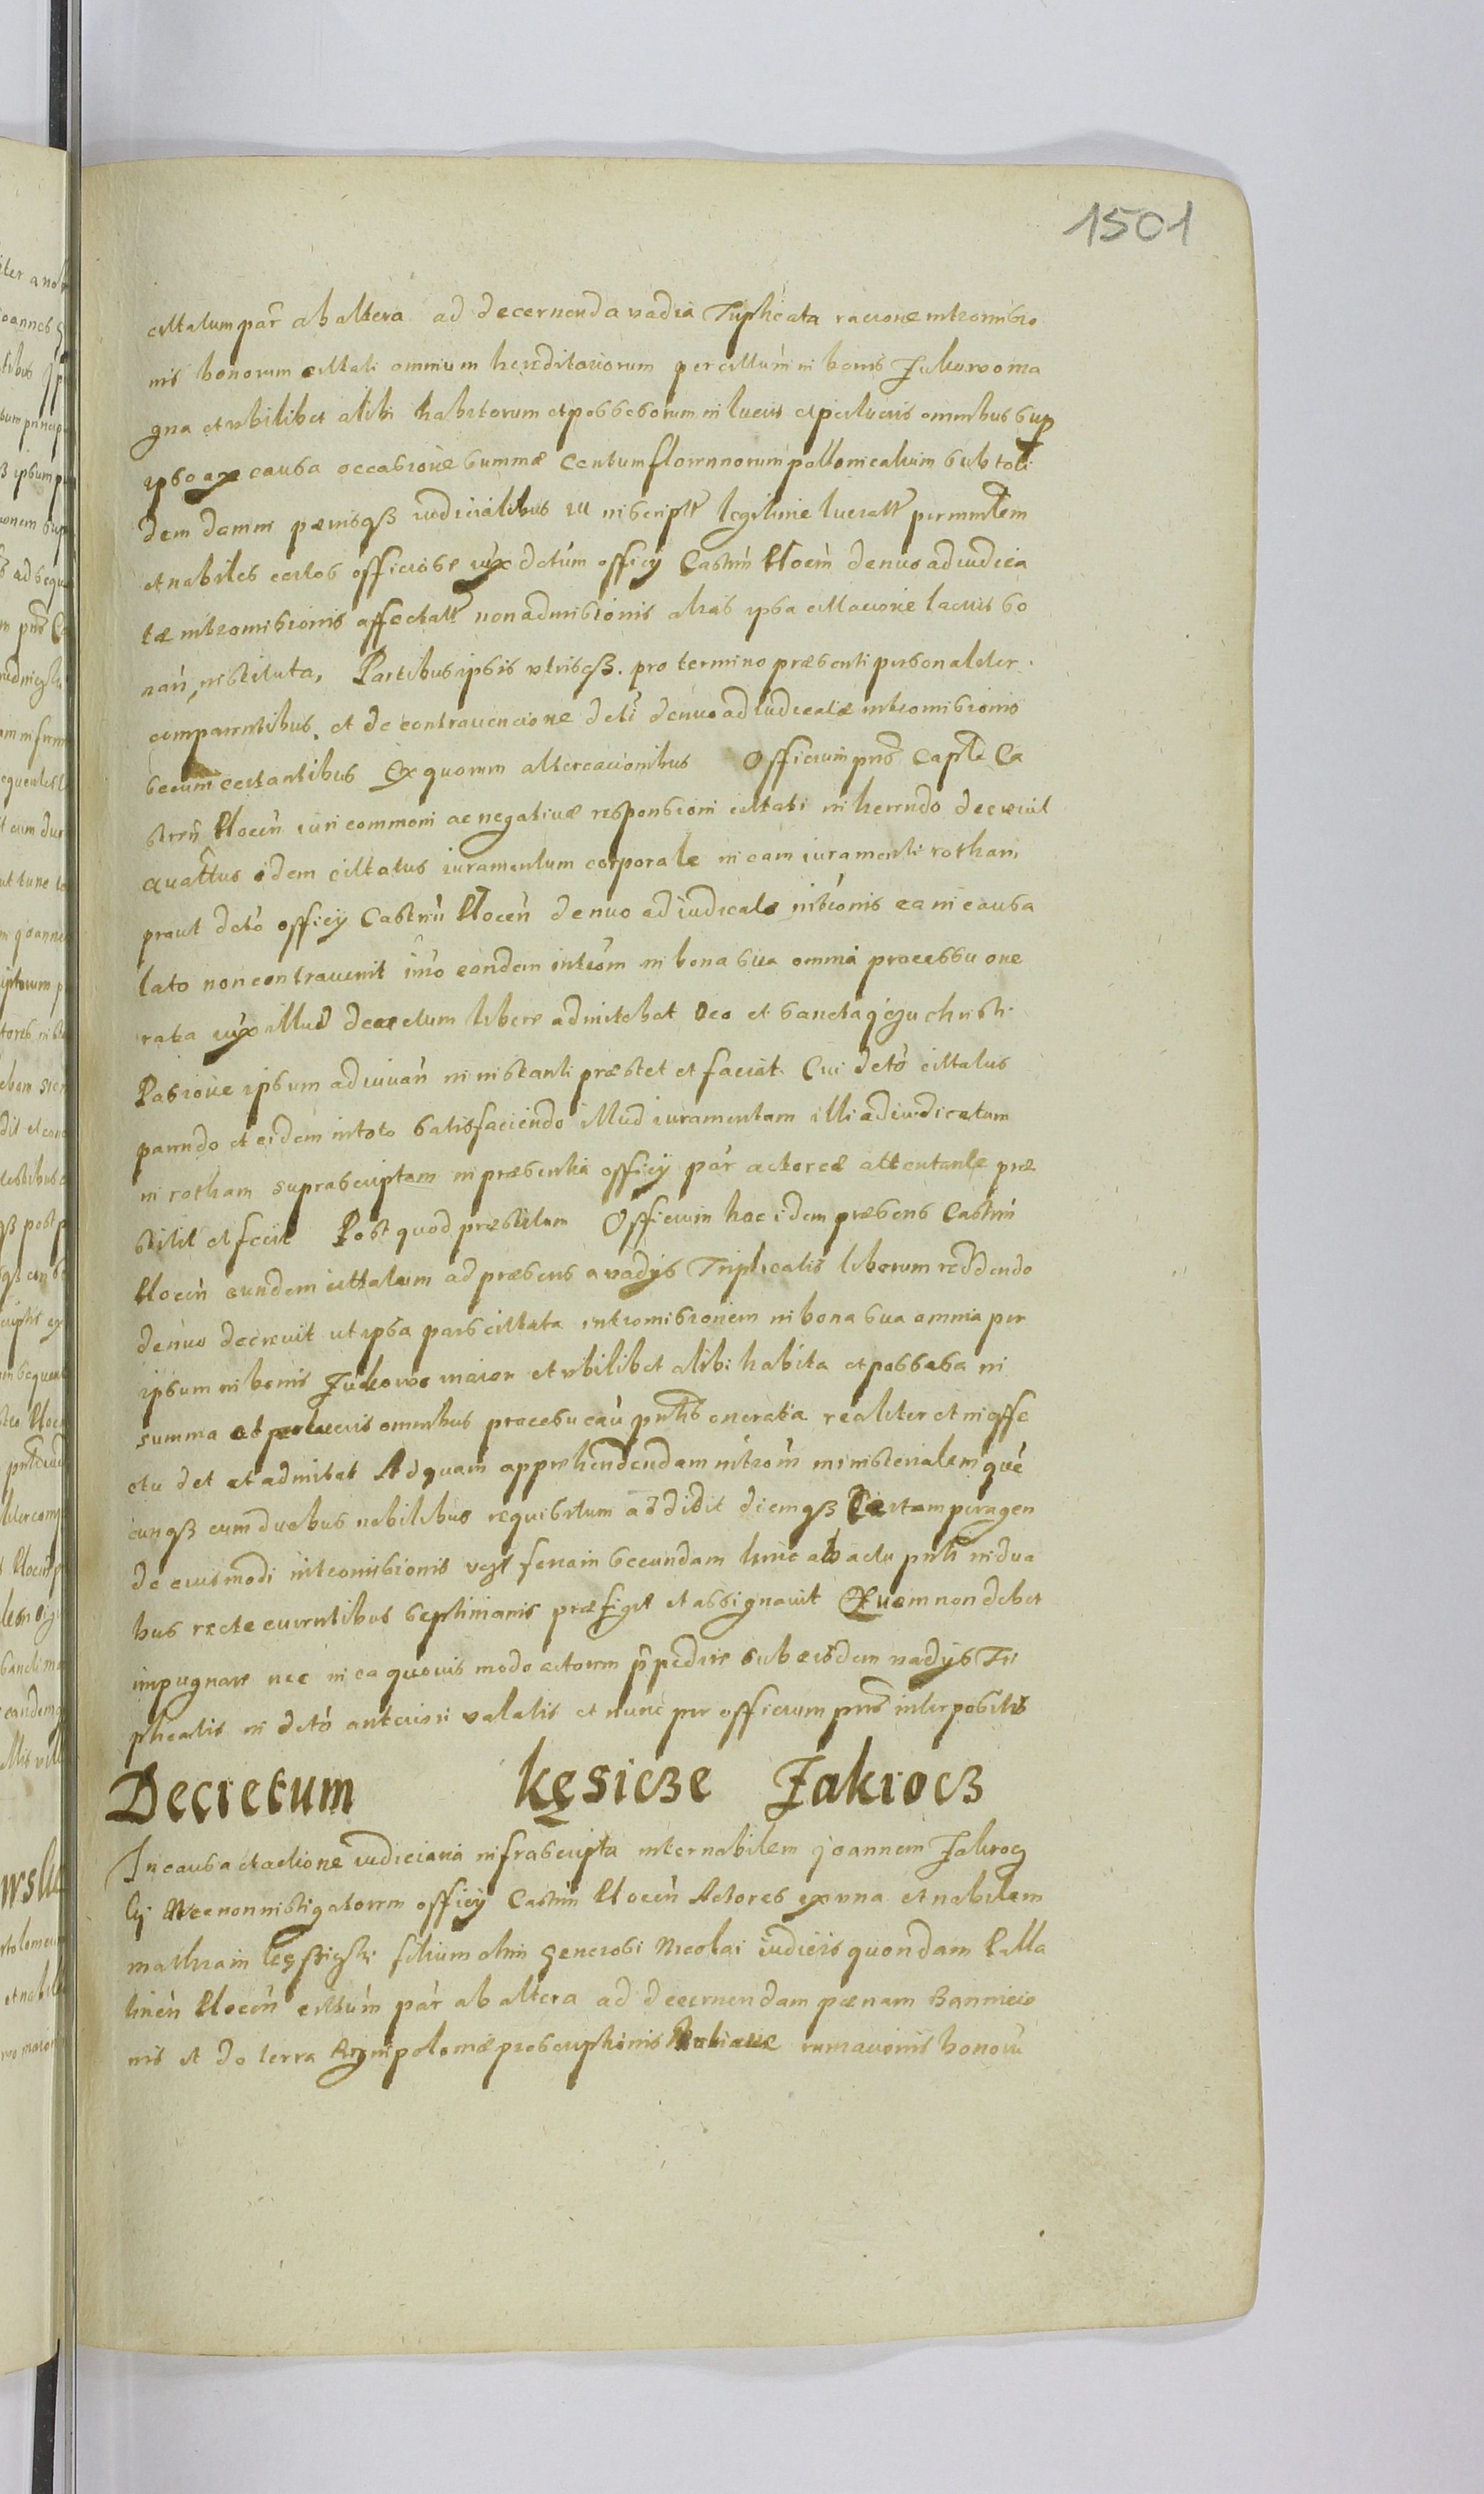 1501
cittatum par ab altera ad decernenda vadia Triplicata racione intromissio
nis bonorum cittati omnium hereditariorum per cittum in bonis Jukowo ma
gna et ubilibet alibi habitorum et possessorum in lucris et perlucris omnibus sup
ipso ex causa occasione summæ centum florennorum pollonicalium sub toti
dem damni pœnisqß iudicialibus in inscriptt legitime lucratt per minrlem
et nobiles certos officiose iux detum officy Castrn Plocen denuo adiudica
tæ intromissionis affectatt non admissionis alias ipsa cittacione lacius so
nan, instituta, Partibus ipsis utrisqß. pro termino præsenti personaliter
comparentibus. et de contravencione deti denuo adiudicatæ intromissionis
secum certantibus Ex quorum altercacionibus Officium pns Capitle Ca
stren Plocen iuri commoni ac negativæ responsioni cittati inherendo decrevit
quattus idem cittatus iuramentum corporale in eam iuramenti rotham
prout deto officy Castrn Plocen denuo adiudicate missionis ea in causa
lato non contravenit imo eandem introm in bona sua omnia processu one
rata iux illud decretum libere admitebat Deo et sancta Jesu christi
Passione ipsum adiuvan in instanti præstet et faciat. Cui deto cittatus
parendo et eidem in toto satisfaciendo illud iuramentum illi adiudicatum
in rotham suprascriptam in præsentia officy par actoreæ attentante præ
stitit et fecit Post quod præstitum Officium hoc idem præsens Castrn
Plocen eundem cittatum ad præsens a vadys Triplicatis liberum reddendo
denuo decrevit ut ipsa pars cittata intromissionem in bona sua omnia per
ipsum in bonis Jukowo maior et ubilibet alibi habita et possessa in
summa et perlucris omnibus processu cau pntis onerata realiter et in effe
ctu det et admitat Ad quam apprehendendam introm ministerialem que
cunqß cum duobus nobilibus requisitum addidit diemqß certam peragen
de eiusmodi intromissionis vozt feriam secundam hinc ab actu pnti in dua
bus recte currentibus septimanis præfigit et assignavit Quem non debet
impugnare nec in ea quovis modo actorem ppedire sub eisdem vadys Tri
plicatis in deto anteriori valatis et nunc per officium pns interpositis
Decretum kęsicze Jakrocz
In causa et actione iudiciaria infrascripta inter nobilem Joannem Jakrocz
ky Necnon instigatorem officy Castrn Plocen Actores ex una et nobilem
mathiam filium olim generosi Nicolai iudicis quondam Palla
tinen Plocen cittum par ab altera ad decernendam pœnam Bannicio
nis et de terra Regni poloniæ proscriptionis bonoru